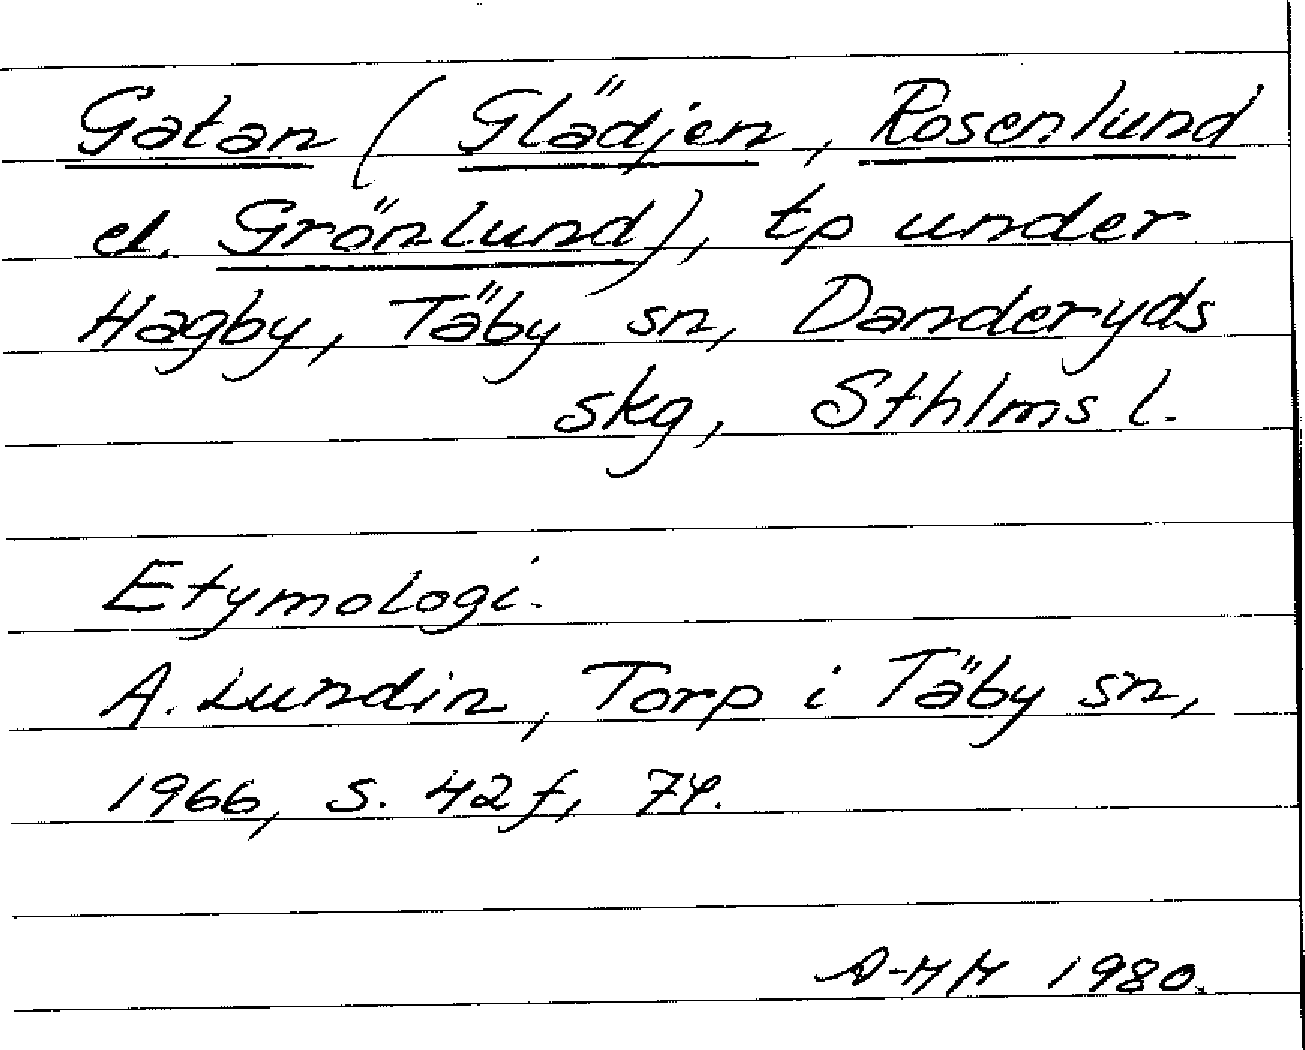 Gatan (Glädjen, Rosenlund
el. Grönlund), tp under
Hagby, Täby sn, Danderyds
skg, Sthlms l.
Etymologi.
A. Lundin, Torp i Täby sn,
1966, s. 42 f, 74.
A-HH 1980.